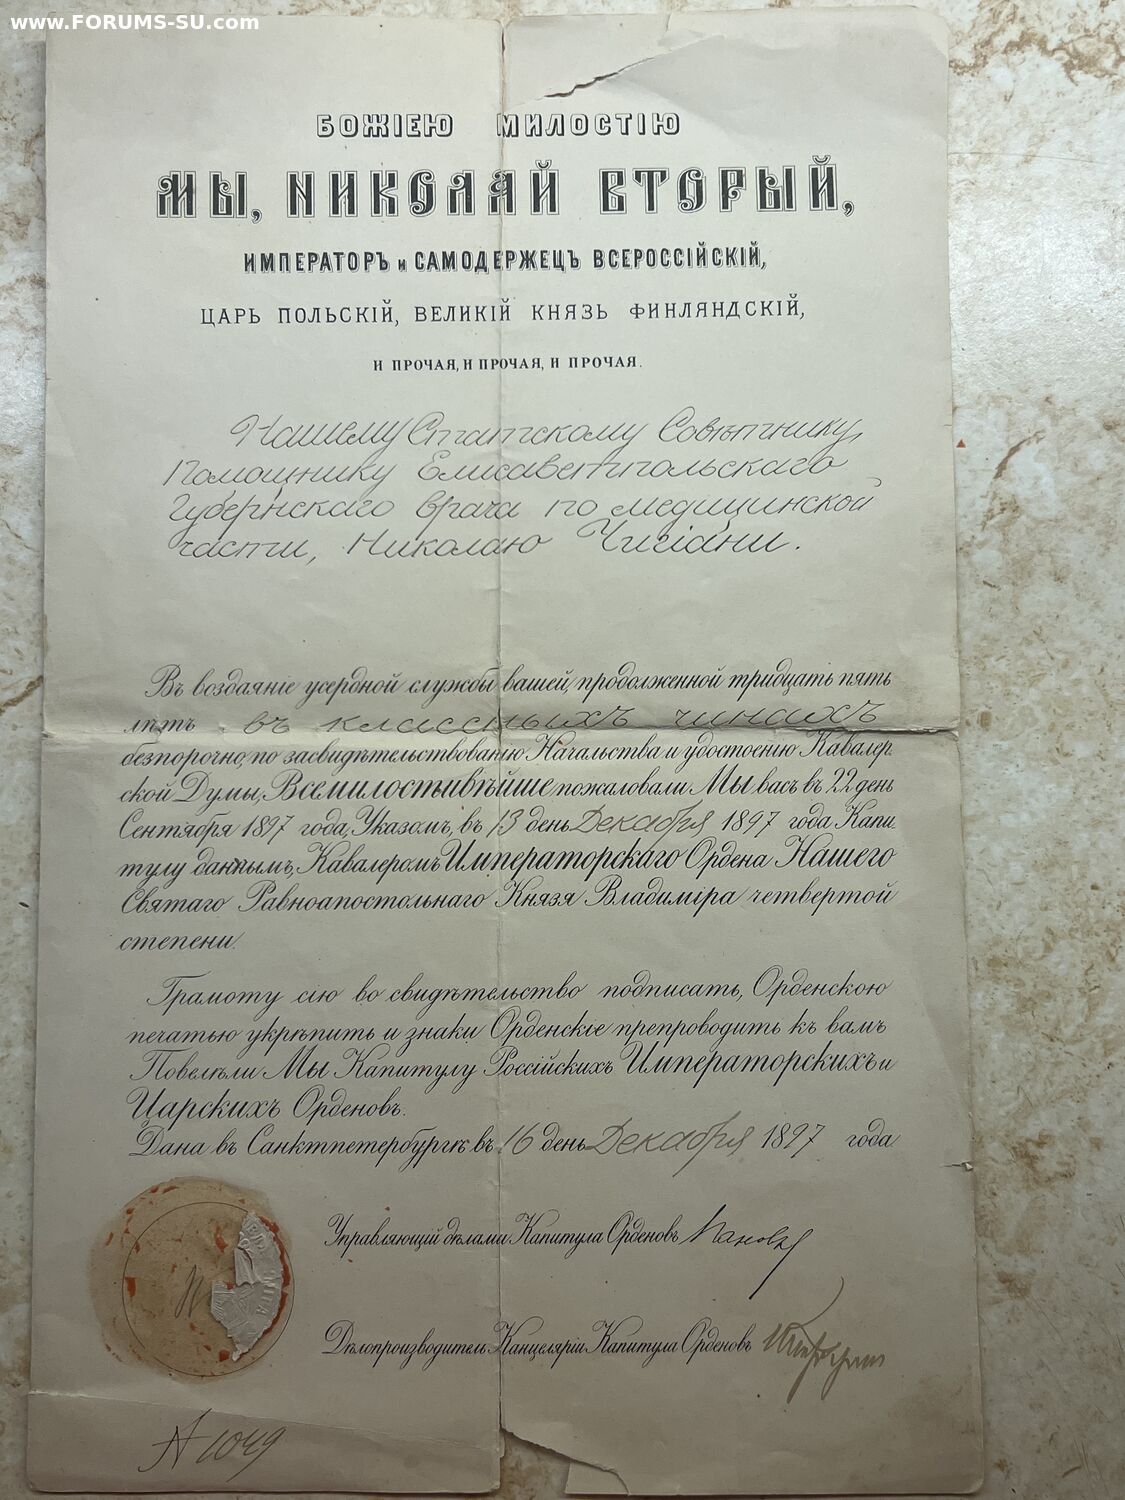 www.FORUMS-SU.com
БОЖІЕЮ МИЛОСТІЮ
МЫ, НИКОЛАЙ ВТОРЫЙ,
ИМПЕРАТОРЪ и САМОДЕРЖЕЦЪ ВСЕРОССІЙСКІЙ,
ЦАРЬ ПОЛЬСКІЙ, ВЕЛИКІЙ КНЯЗЬ ФИНЛЯНДСКІЙ,
И ПРОЧАЯ, И ПРОЧАЯ, И ПРОЧАЯ.
Нашему Статскому Совѣтнику,
Помощнику Елисаветпольскаго
Губернскаго врача по медицинской
части, Николаю Чигіани.
Въ воздаяніе усердной службы вашей, продолженной тридцать пять
лѣтъ въ классныхъ чинахъ
безпорочно, по засвидѣтельствованію Начальства и удостоенію Кавалер
ской Думы, Всемилостивѣйше пожаловали Мы васъ въ 22 день
Сентября 1897 года, Указомъ, въ 13 день Декабря 1897 года Капи
тулу даннымъ, Кавалеромъ Императорскаго Ордена Нашего
Святаго Равноапостольнаго Князя Владиміра четвертой
степени.
Грамоту сію во свидѣтельство подписать, Орденскою
печатью укрѣпить и знаки Орденскіе препроводить къ вамъ
Повелѣли Мы Капитулу Россійскихъ Императорскихъ и
Царскихъ Орденовъ.
Дана въ Санктпетербургѣ въ 16 день Декабря 1897 года
Управляющій дѣлами Капитула Орденовъ
Дѣлопроизводитель Канцеляріи Капитула Орденовъ
№ 1049